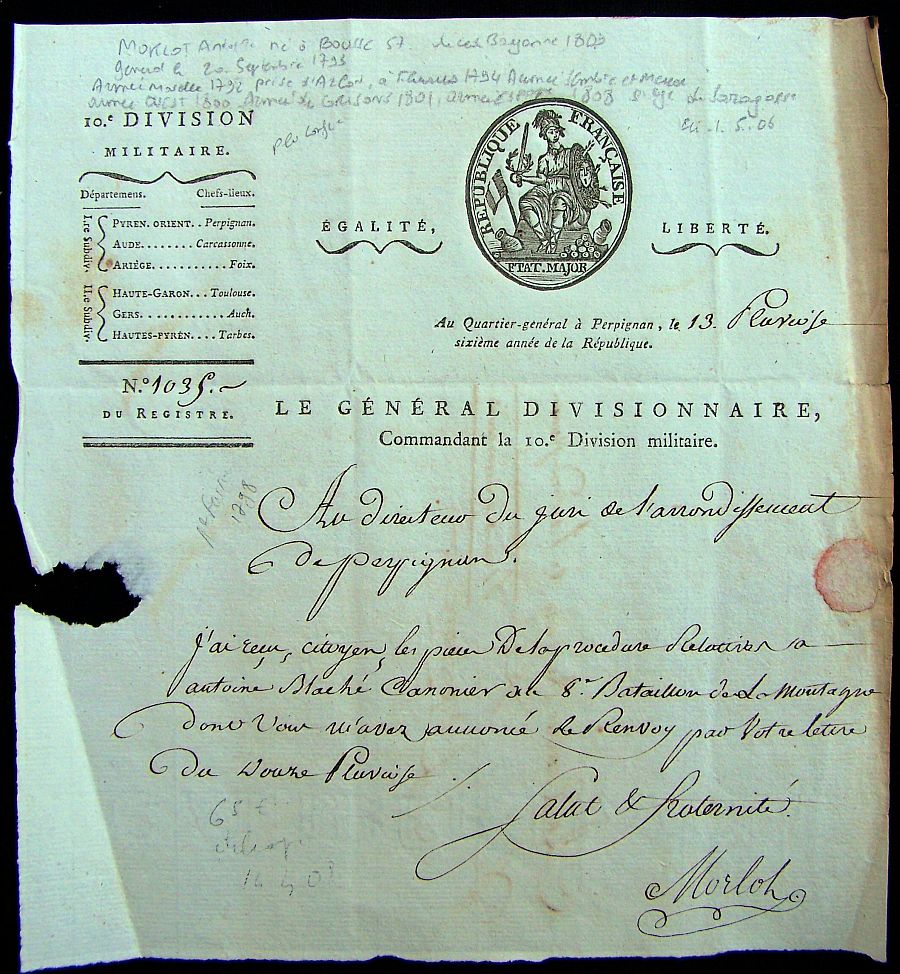 MORLOT né à BOUSSE 57 Bayonne 1809
général le 20 Septembre 1793
Armée Moselle 1792, prise d'Arlon, à 1794 Armée Sambre et Meuse
armée OUEST 1800 Armée des Grisons 1801, armée 1808 siège de Saragosse
1.5.06
10.e DIVISION
MILITAIRE.
Départemens. Chefs-lieux.
I.re Subdiv.
PYREN. ORIENT. . Perpignan.
AUDE. . . . . . . . Carcassonne.
ARIÈGE. . . . . . . . . . . Foix.
II.e Subdiv.
HAUTE-GARON. . . Toulouse.
GERS. . . . . . . . . . . . Auch.
HAUTES-PYRÉN. . . . Tarbes.
N.º 1035.
DU REGISTRE.
ÉGALITÉ,
RÉPUBLIQUE FRANÇAISE
ETAT. MAJOR
LIBERTÉ.
Au Quartier-général à Perpignan, le 13. Pluviose
sixième année de la République.
LE GÉNÉRAL DIVISIONNAIRE,
Commandant la 10.e Division militaire.
1798
Au directeur du juri de l'arrondissement
de perpignan.
J'ai reçu, citoyen, les pieces De la procedure Relatives a
antoine Blaché Canonier au 8.e Bataillon de La Montagne
dont Vous m'avez annoncé le Renvoy par Votre lettre
Du Douze Pluviose
Salut & fraternité.
Morlot
65 €